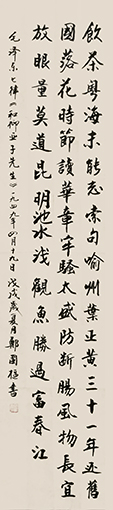 飲茶粵海未能忘索句渝州葉正黃三十一年還舊
國落花時節讀華章牢騷太盛防斷腸風物長宜
放眼量莫道昆明池水淺觀魚勝過富春江
毛澤東七律和柳亞子先生一九四九年四月廿九日戊戌歲夏月鄭